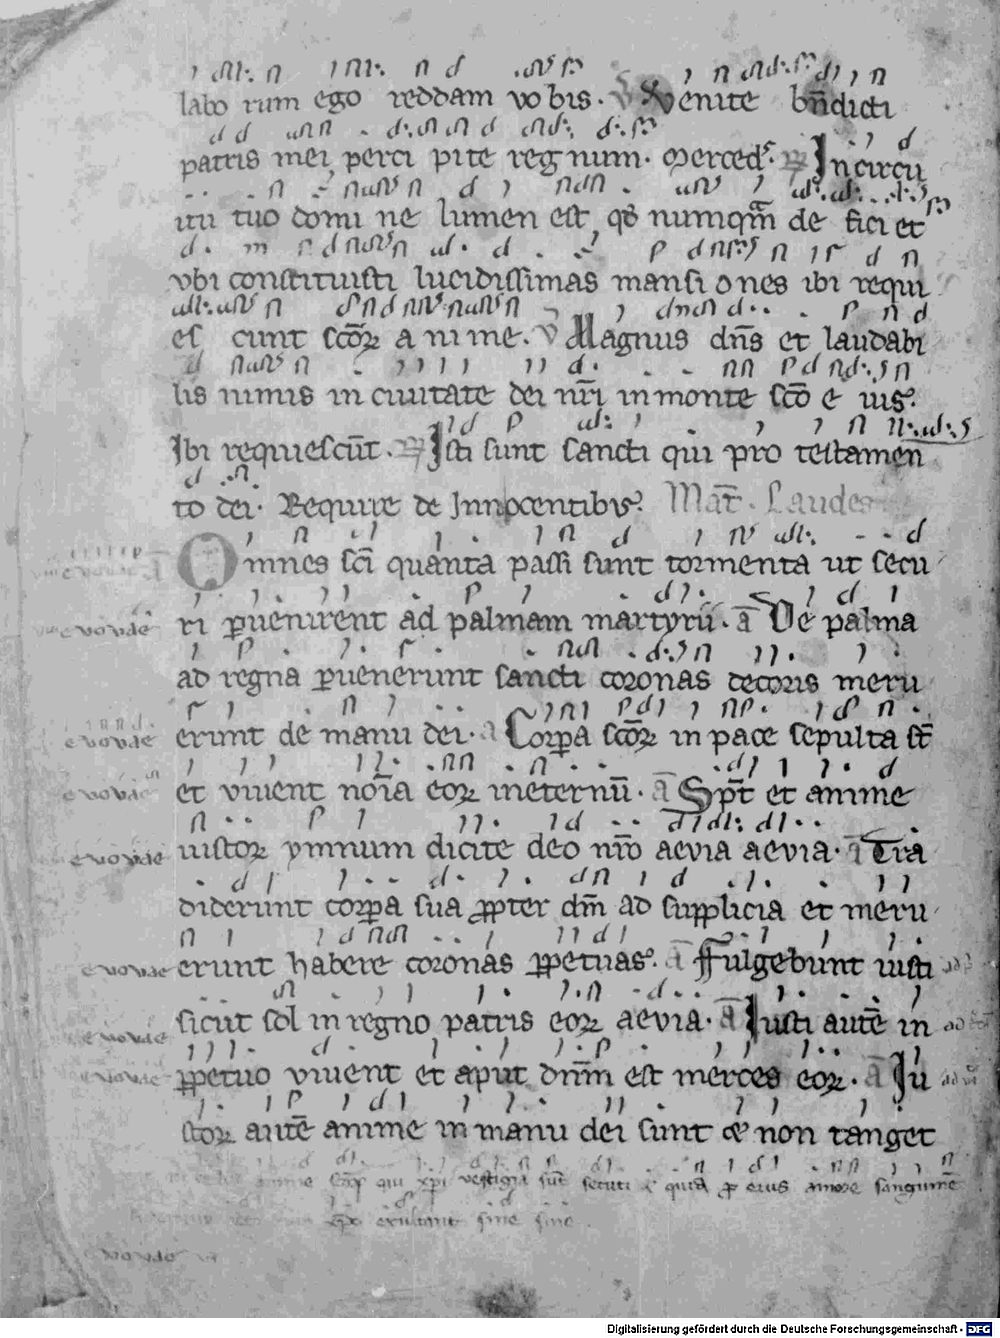 labo rum ego reddam vo bis. V Venite bn̄dicti
patris mei perci pite reg num. Merced᷒. R In circu
itu tuo domi ne lumen est qd̄ numqm̄ de fici et
vbi constituisti lucidissimas mansi o nes ibi requi
es cunt sc̄oꝝ a ni me. V Magnus dn̄s et laudabi
lis nimis in ciuitate dei nr̄i in monte sc̄o e ius.
Ibi requiescūt. R Isti sunt sancti qui pro testamen
to dei. Require de Innocentibus. Mat̄. Laudes
Omnes sc̄i quanta passi sunt tormenta ut secu
ri ꝑuenirent ad palmam martyrū. a̅ De palma
ad regna ꝑuenerunt sancti coronas decoris meru
euouae erunt de manu dei. a Corꝑa sc̄oꝝ in pace sepulta st̄
euouae et viuent noīa eoꝝ in eternū. a̅ Sp̄t et anime
euouae iustoꝝ ymnum dicite deo nr̄o aevia aevia. a̅ Tra
diderunt corꝑa sua ꝓpter dm̄ ad supplicia et meru
euouae erunt habere coronas ꝑpetuas. a̅ Fulgebunt iusti
euouae sicut sol in regno patris eoꝝ aevia. a̅ Iusti autē in
euouae ꝑpetuo viuent et aput dn̄m est merces eoꝝ. a̅ Iu
stoꝝ autē anime in manu dei sunt et non tanget
anime sc̄oꝝ qui xp̄i vestigia sūt secuti et quia ꝓ eius amore sanguinē
exultant sine fine
euouae
Digitalisierung gefördert durch die Deutsche Forschungsgemeinschaft - DFG